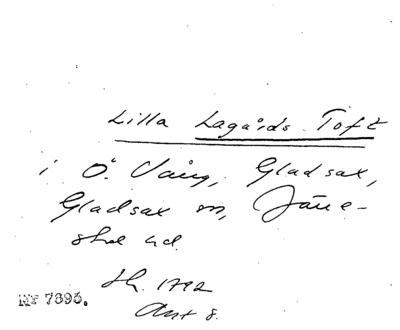 Lilla Lagårds Toft
i Ö. Vång, Gladsax,
Gladsax sn, Järre-
stad hd.
Sk. 1792
Akt 8.
NY 7895.